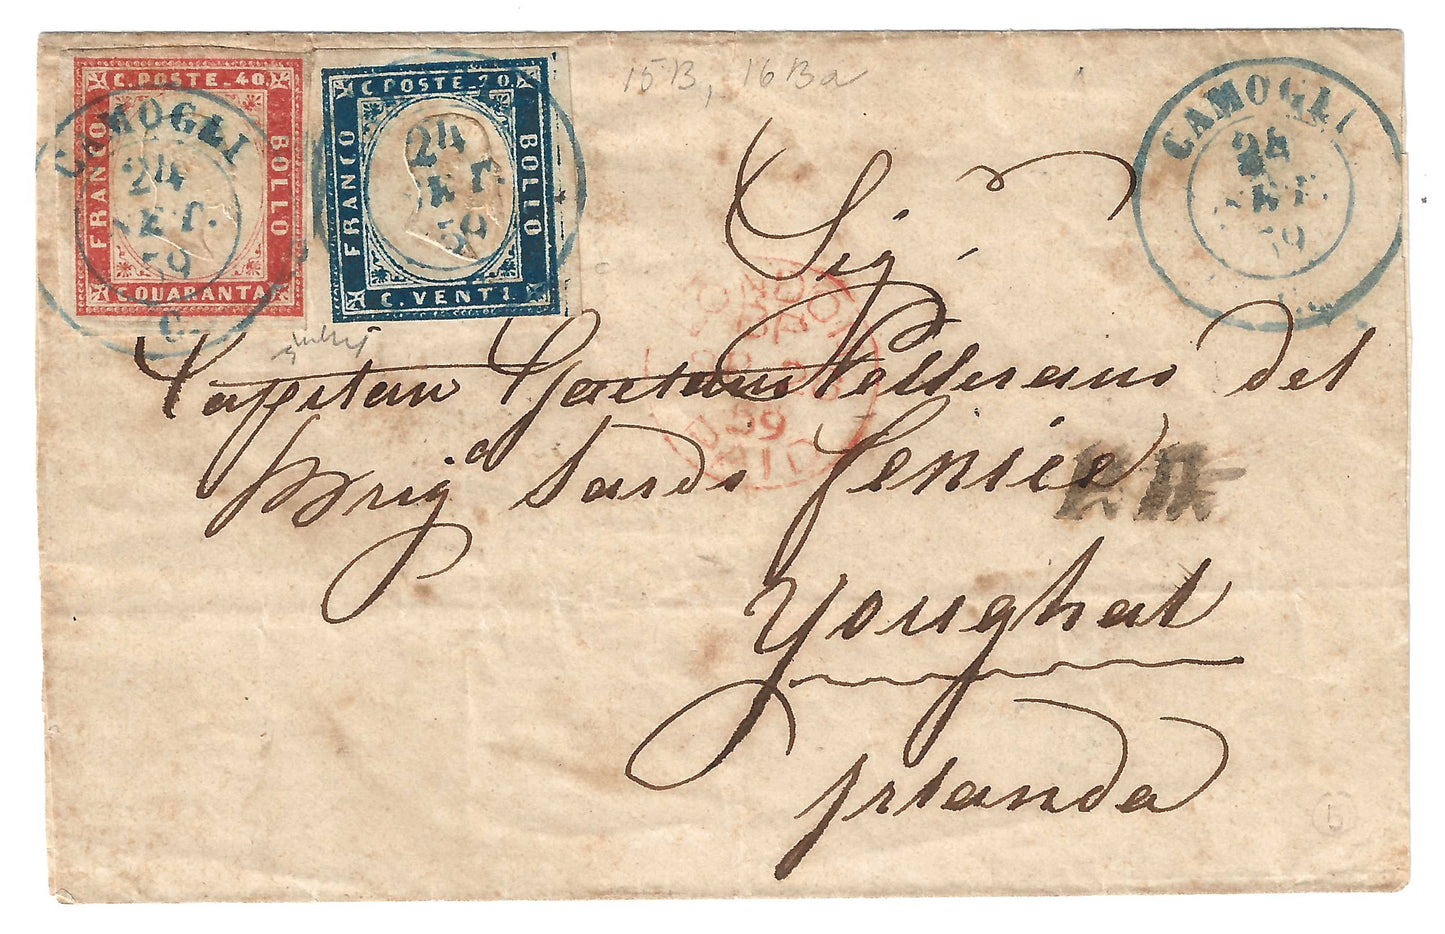 C. POSTE. 40
FRANCO
BOLLO
C. QUARANTA
CAMOGLI
24
SET.
59
C. POSTE. 20
FRANCO
BOLLO
C. VENTI
24
SET.
59
15B, 16Ba
CAMOGLI
24
SET.
59
LONDON
59
PAID
Sig.
Capitan Gaetano del
Brig.d Sardo Fenice
Youghal
Irlanda
b